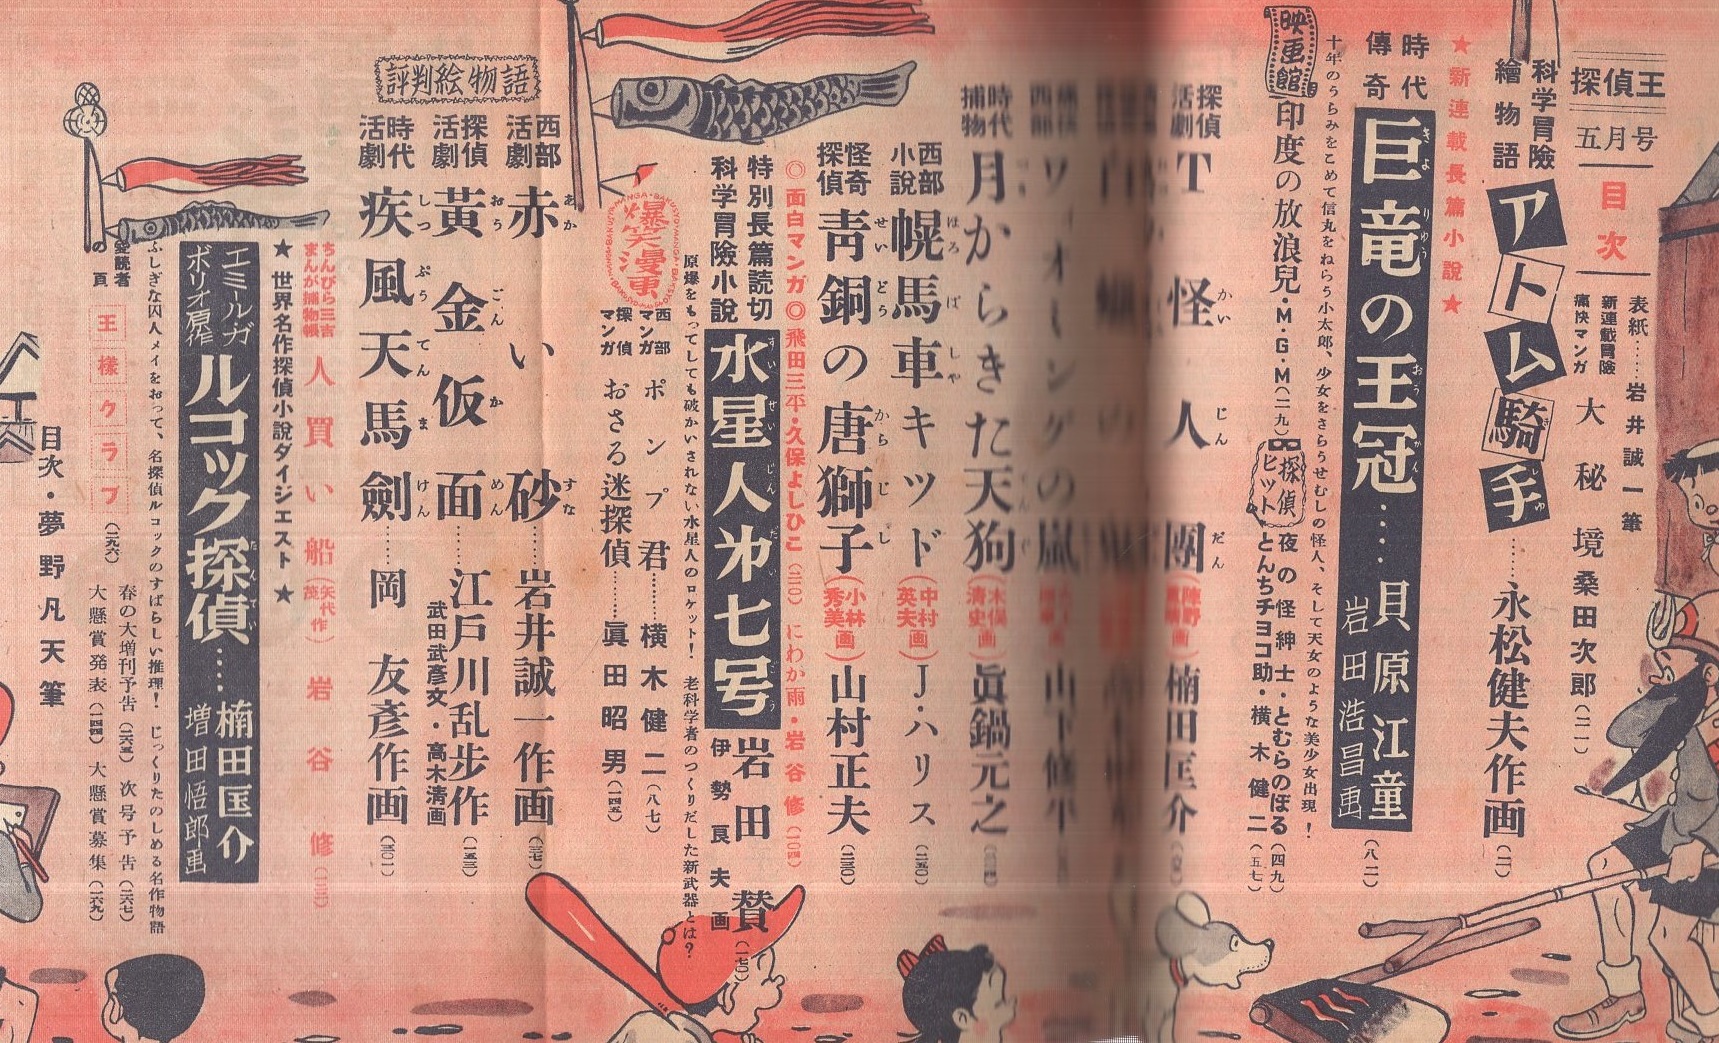 探偵王
五月号
目次
表紙……岩井誠一筆
新連載冒険
痛快マンガ
大秘境 桑田次郎(二一)
科学冒險
繪物語
アトム騎手……永松健夫作画
★新連載長篇小說★
時代
傳奇
巨竜の王冠……貝原江童
岩田浩昌画
(八二)
十年のうらみをこめて信丸をねらう小太郎、少女をさらうせむしの怪人、そして天女のような美少女出現!
映画館
印度の放浪兒・M・G・M(二九)
探偵
ヒット
夜の怪紳士・とむらのぼる(四九)
とんちチヨコ助・横木健二(五七)
探偵
活劇
T怪人團
楠田匡介
の嵐
時代
捕物
月からきた天狗(木俣清史画)眞鍋元之
西部
小說
幌馬車キツド(中村英夫画)J・ハリス(二五〇)
怪奇
探偵
靑銅の唐獅子(小林秀美画)山村正夫(二三〇)
◎面白マンガ◎飛田三平・久保よしひこ(二〇)にわか雨・岩谷修(一〇四)
特別長篇読切
科学冒險小說
水星人㐧七号 岩田賛(一七〇)
伊勢良夫画
原爆をもってしても破かいされない水星人のロケット! 老科学者のつくりだした新武器とは?
爆笑漫画
西部
マンガ
ポンプ君……横木健二(八七)
探偵
マンガ
おさる迷探偵……眞田昭男(一四五)
評判絵物語
西部
活劇
赤い砂……岩井誠一作画(三七)
探偵
活劇
黃金仮面……江戸川乱歩作(一五三)
武田武彥文・高木清画
時代
活劇
疾風天馬劍……岡友彥作画(三〇一)
ちんぴら三吉
まんが捕物帳
人買い船(矢代作茂)岩谷修(三三)
★世界名作探偵小説ダイジエスト★
エミルガ
ボリオ原作
ルコック探偵……楠田匡介
増田悟郎画
ふしぎな囚人メイをおって、名探偵ルコックのすばらしい推理! じっくりたのしめる名作物語
愛読者
の頁
王様クラブ(二九六)
春の大増刊予告(二六五) 次号予告(二六七)
大懸賞発表(一四四) 大懸賞募集(一六九)
目次・夢野凡天筆